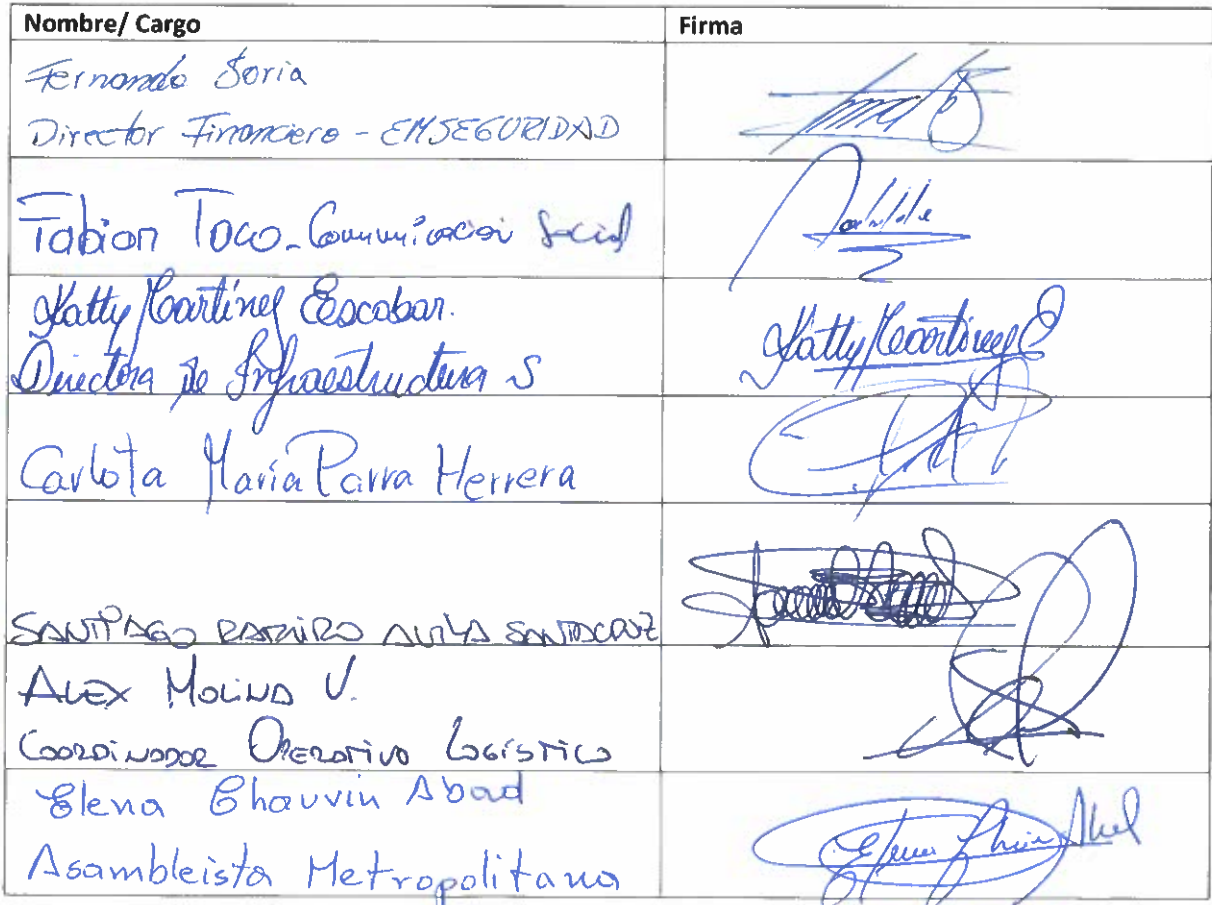 Nombre/ Cargo
Firma
Fernando Soria
Director Financiero - EMSEGURIDAD
Fabian Toco - Comunicacion Social
Katty Martinez Escobar.
Katty Martinez E
Directora de Infraestructura S
Carlota Maria Parra Herrera
SANTIAGO RAMIRO AVILA SANTACRUZ
ALEX MOLINA V.
COORDINADOR OPERATIVO LOGÍSTICO
Elena Chauvin Abad
Asambleista Metropolitana